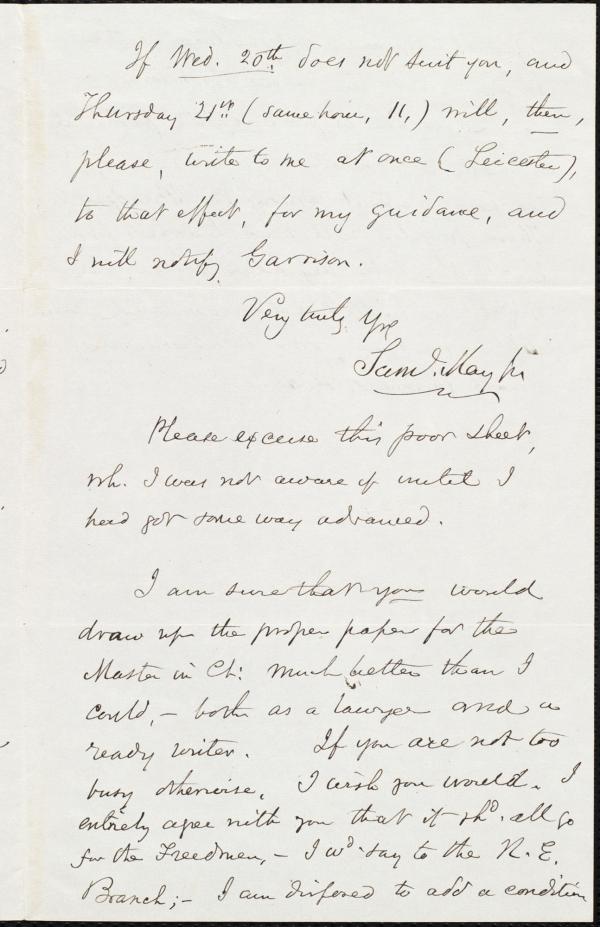 If Wed. 20th does not suit you, and
Thursday 21st (same hour, 11,) will, then,
please, write to me at once (Leicester),
to that effect, for my guidance, and
I will notify Garrison.
Very truly Yrs
Saml. May Jr
Please excuse this poor sheet,
wh. I was not aware of until I
had got some way advanced.
I am sure that you would
draw up the proper paper for the
Master in Ch: much better than I
could, – both as a lawyer and a
ready writer. If you are not too
busy otherwise, I wish you would. I
entirely agree with you that it shd. all go
for the Freedmen, – I wd. say to the N. E.
Branch; – I am disposed to add a condition